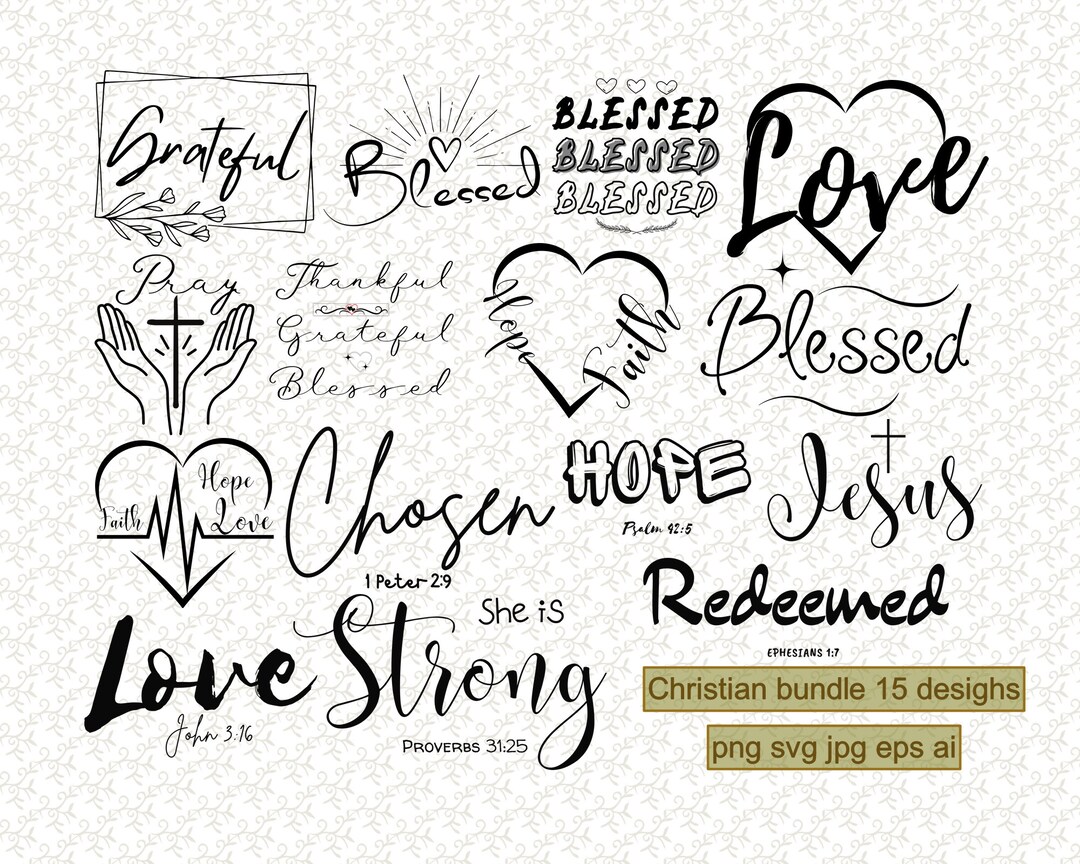 Grateful
Blessed
BLESSED
BLESSED
BLESSED
Love
Pray
Thankful
Grateful
Blessed
Hope
Faith
Blessed
Faith
Hope
Love
Chosen
1 Peter 2:9
HOPE
Psalm 42:5
Jesus
Love
John 3:16
She is
Strong
Proverbs 31:25
Redeemed
EPHESIANS 1:7
Christian bundle 15 desighs
png svg jpg eps ai